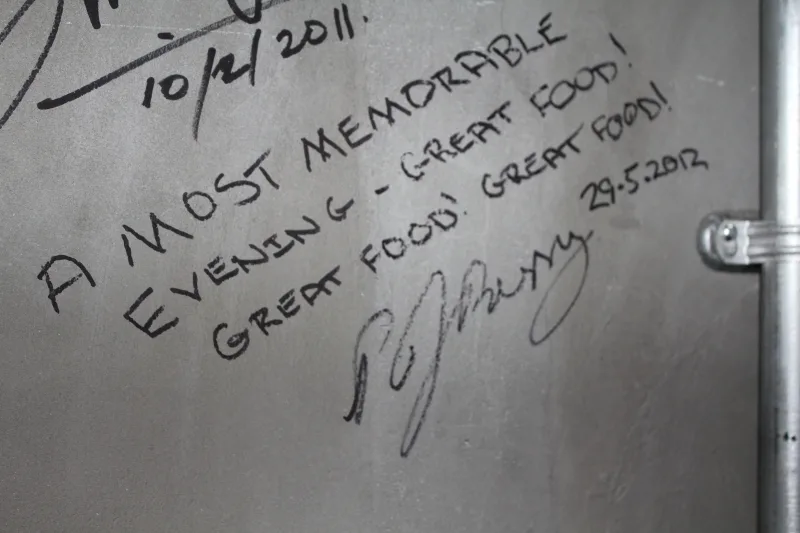 10/2/2011.
A MOST MEMORABLE
EVENING - GREAT FOOD!
GREAT FOOD! GREAT FOOD!
29.5.2012